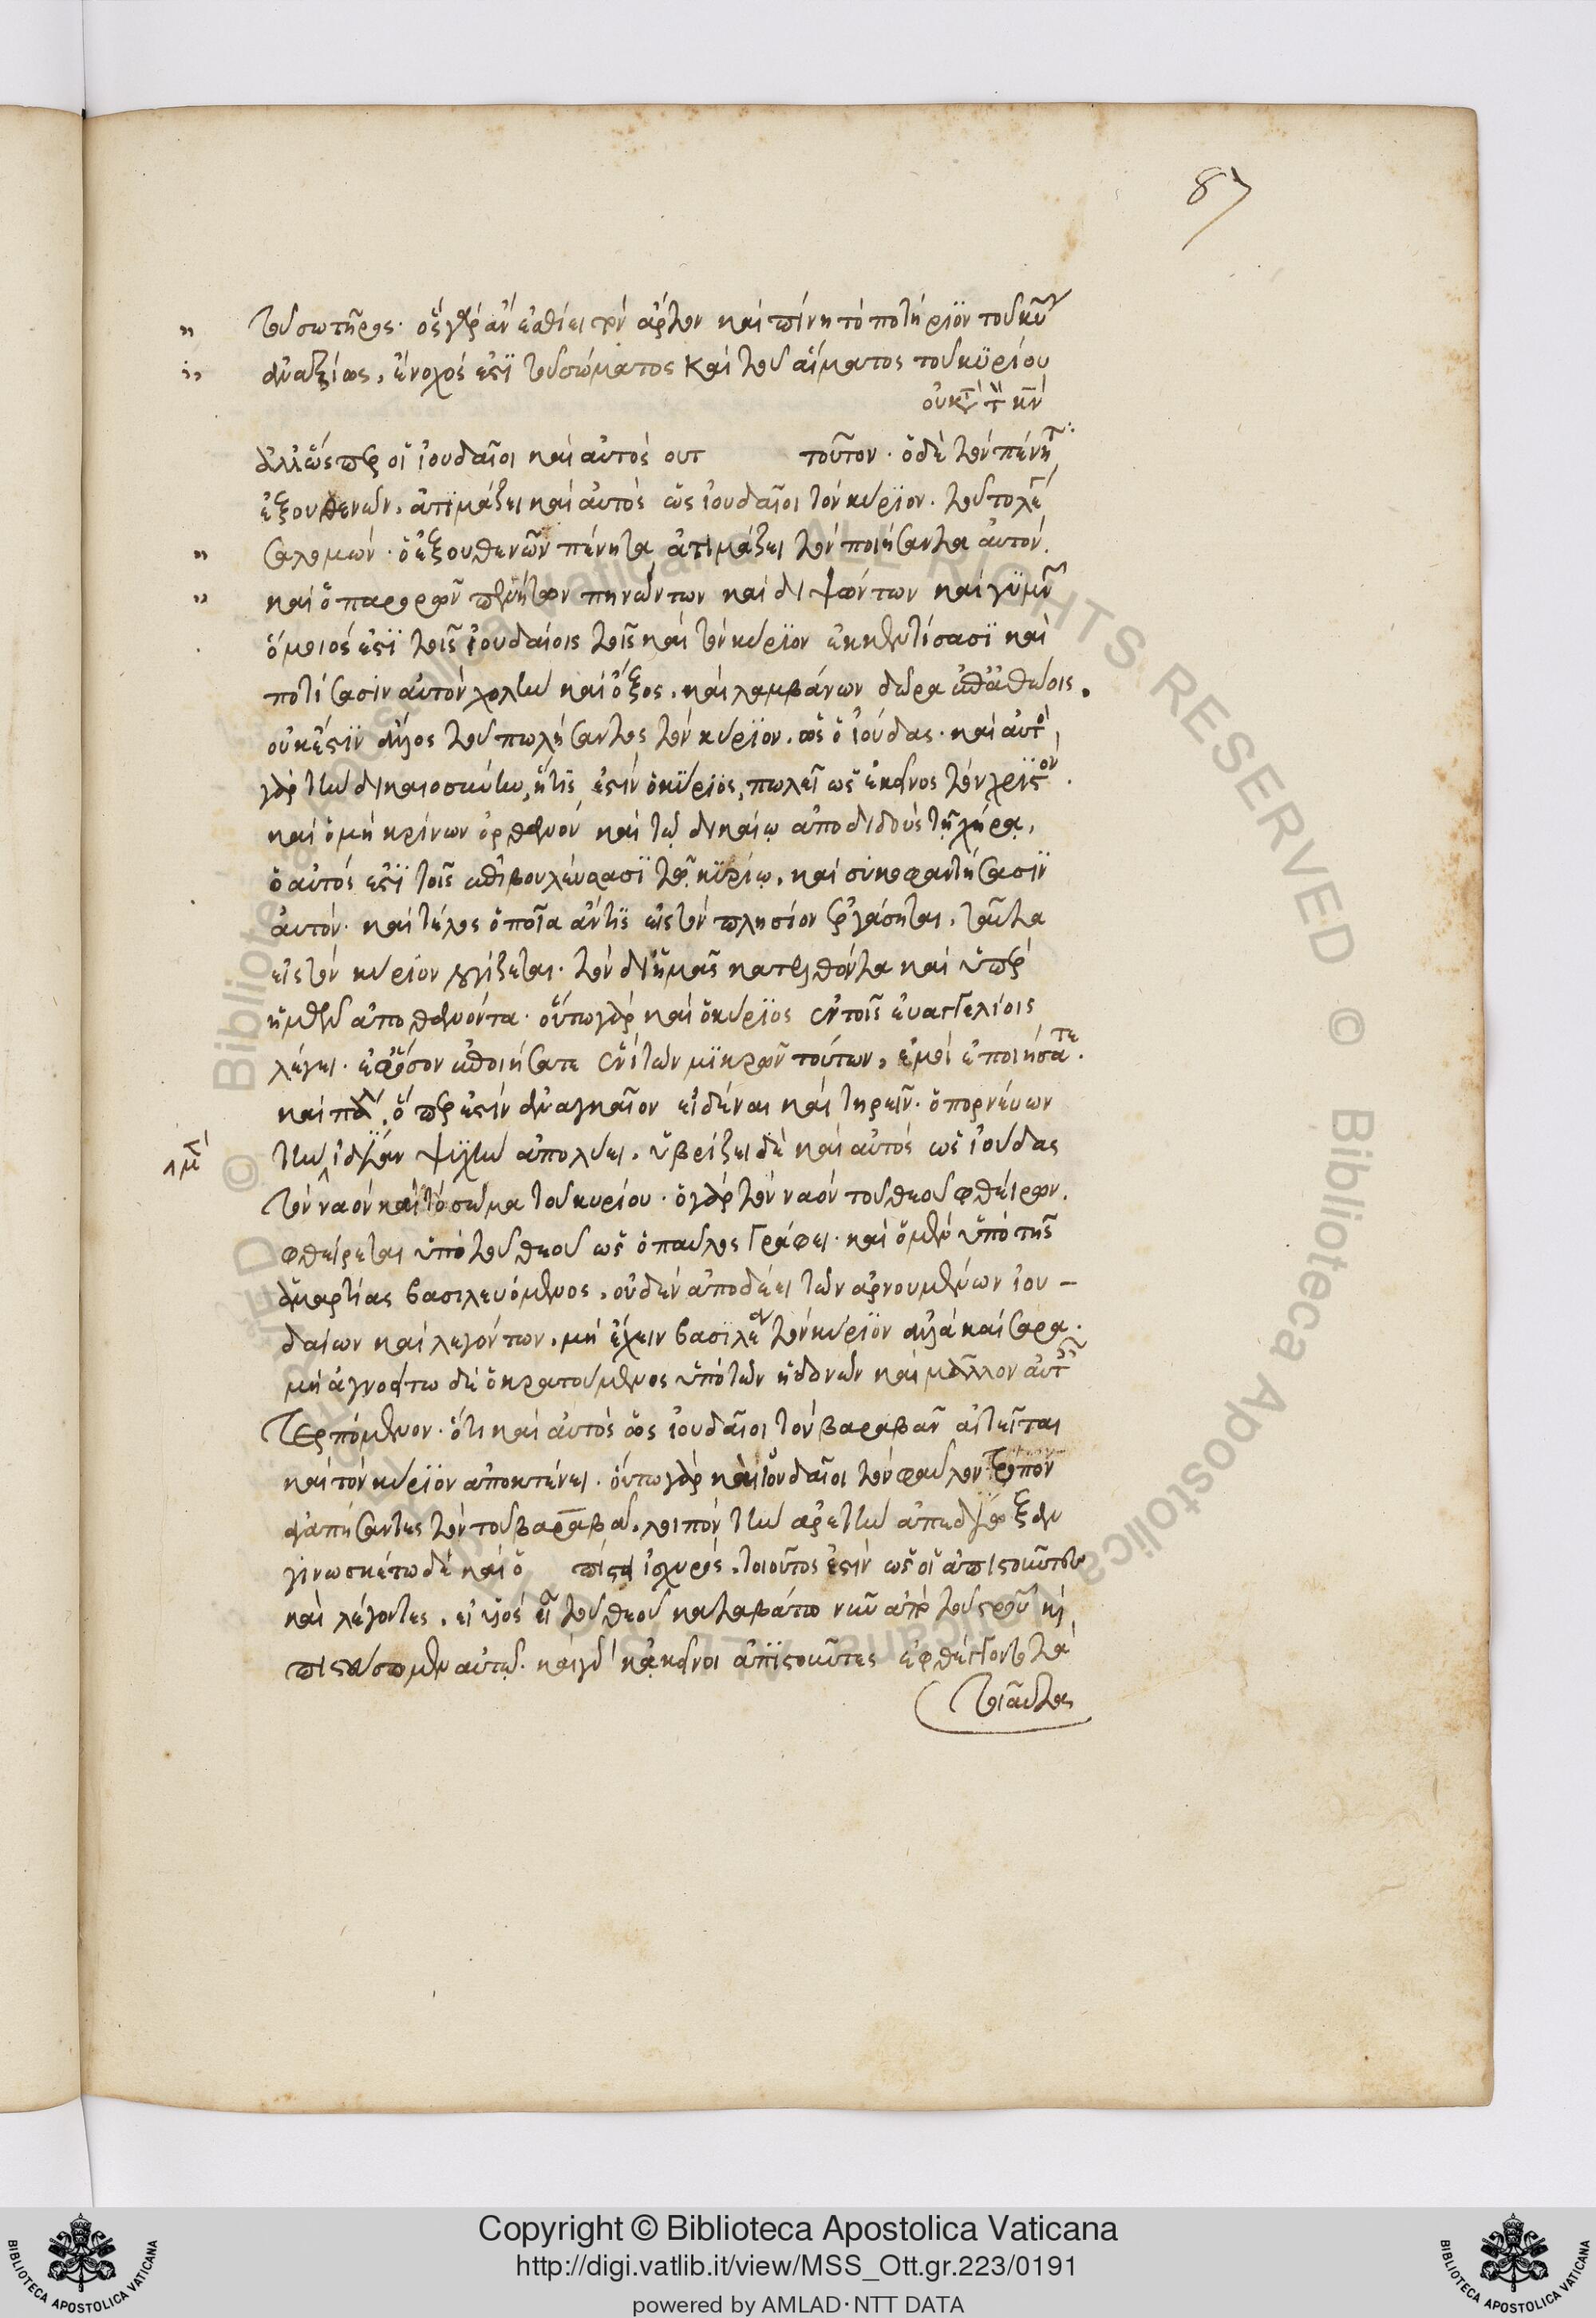 87
τοῦ σωτῆρος· ὃς γὰρ ἂν ἐσθίει τὸν ἄρτον καὶ πίνη τὸ ποτήριον τοῦ κυ
ἀναξίως, ἔνοχός ἐστι τοῦ σώματος καὶ τοῦ αἵματος τοῦ κυρίου
ἀλλ' ὥσπερ οἱ ἰουδαῖοι καὶ αὐτὸς ουτ τοῦτον· ὁ δὲ τὸν πένητ
ἐξουθενῶν, ἀτιμάζει καὶ αὐτὸς ὡς ἰουδαῖοι τὸν κύριον.
σαλομών· ὁ ἐξουθενῶν πένητα ἀτιμάζει τὸν ποιήσαντα αὐτόν.
καὶ ὁ παρορῶν πενήτων πηνώντων καὶ διψώντων καὶ γυμν
ὅμοιός ἐστι τοῖς ἰουδαίοις τοῖς καὶ τὸν κύριον ἐκκεντίσασι καὶ
ποτίσασιν αὐτὸν χολὴν καὶ ὄξος. καὶ λαμβάνων δῶρα ἐπ' ἀθώοις.
οὐκ ἔστιν ἄλλος τοῦ πωλήσαντος τὸν κύριον, ὡς ὁ ἰούδας· καὶ αὐτὸς
γὰρ τὴν δικαιοσύνην, ἥτις ἐστὶν ὁ κύριος, πωλεῖ ὡς ἐκεῖνος τὸν χριστόν.
καὶ ὁ μὴ κρίνων ὀρφανὸν καὶ τῷ δικαίῳ ἀποδιδοὺς τῇ χήρᾳ,
ὁ αὐτός ἐστι τοῖς ἐπιβουλεύσασι τῷ κυρίῳ, καὶ συκοφαντήσασιν
αὐτόν· καὶ τέλος ὁποῖα ἄν τις εἰς τὸν πλησίον ἐργάσηται, ταῦτα
εἰς τὸν κύριον λογίζεται· τὸν δι' ἡμᾶς κατελθόντα καὶ ὑπὲρ
ἡμῶν ἀποθανόντα· οὕτω γὰρ καὶ ὁ κύριος ἐν τοῖς εὐαγγελίοις
λέγει· ἐφ' ὅσον ἐποιήσατε ἑνὶ τῶν μικρῶν τούτων, ἐμοὶ ἐποιήσατε.
καὶ παλ, ὅπερ ἐστὶν ἀναγκαῖον εἰδέναι καὶ τηρεῖν· ὁ πορνεύων
τὴν ἰδίαν ψυχὴν ἀπολύει. ὑβρίζει δὲ καὶ αὐτὸς ὡς ἰούδας
τὸν ναὸν καὶ τὸ σῶμα τοῦ κυρίου· ὁ γὰρ τὸν ναὸν τοῦ θεοῦ φθείρων,
φθείρεται ὑπὸ τοῦ θεοῦ ὡς ὁ παῦλος γράφει· καὶ ὁ μὲν ὑπὸ τῆς
ἁμαρτίας βασιλευόμενος, οὐδὲν ἀποδέει τῶν ἀρνουμένων ἰου-
δαίων καὶ λεγόντων, μὴ ἔχειν βασιλέαν τὸν κύριον ἀλλὰ καίσαρα.
μὴ ἀγνοείτω δὲ ὁ κρατούμενος ὑπὸ τῶν ἡδονῶν καὶ μᾶλλον αὐτῶν
τερπόμενον· ὅτι καὶ αὐτὸς ὡς ἰουδαῖοι τὸν βαραβᾶν αἰτεῖται
καὶ τὸν κύριον ἀποκτένει. οὕτω γὰρ καὶ ἰουδαῖοι τὸν φαῦλον τρόπον
ἀγαπήσαντες τὸν τοῦ βαραβᾶ, λοιπὸν τὴν ἀρετὴν ἀπεδίωξαν
γινωσκέτω δὲ καὶ ὁ πίστει ἰσχυρός, τοιοῦτος ἐστὶν ὡς οἱ ἀπιστοῦντες
καὶ λέγοντες, εἰ υἱὸς εἶ τοῦ θεοῦ καταβάτω νῦν ἀπὸ τοῦ σροῦ κὶ
πιστεύσωμεν αὐτῷ. καὶ γὰρ κἀκεῖνοι ἀπιστοῦντες ἐφθέγγοντο τὰ
τοιαῦτα